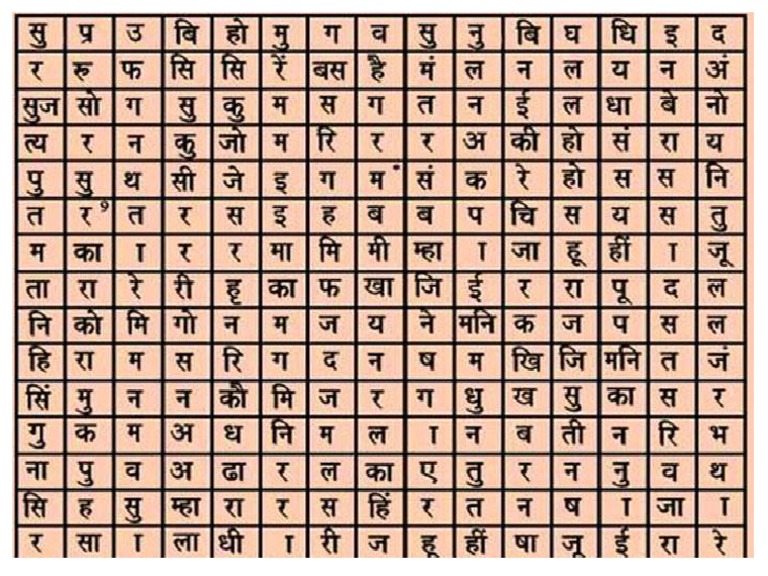 सु प्र उ बि हो मु ग व सु नु बि घ धि इ द
र रु फ सि सि रें बस है मं ल न ल य न अं
सुज सो ग सु कु म स ग त न ई ल धा बे नो
त्य र न कु जो म रि र र अ की हो सं रा य
पु सु थ सी जे इ ग म ं सं क रे हो स स नि
त र त र स इ ह ब ब प चि स य स तु
म का ा र र मा मि मी म्हा ा जा हू हीं ा जू
ता रा रे री हृ का फ खा जि ई र रा पू द ल
नि को मि गो न म ज य ने मनि क ज प स ल
हि रा म स रि ग द न ष म खि जि मनि त जं
सिं मु न न कौ मि ज र ग धु ख सु का स र
गु क म अ ध नि म ल ा न ब ती न रि भ
ना पु व अ ढा र ल का ए तु र न नु व थ
सि ह सु म्हा रा र स हिं र त न ष ा जा ा
र सा ा ला धी ा री ज हू हीं षा जू ई रा रे